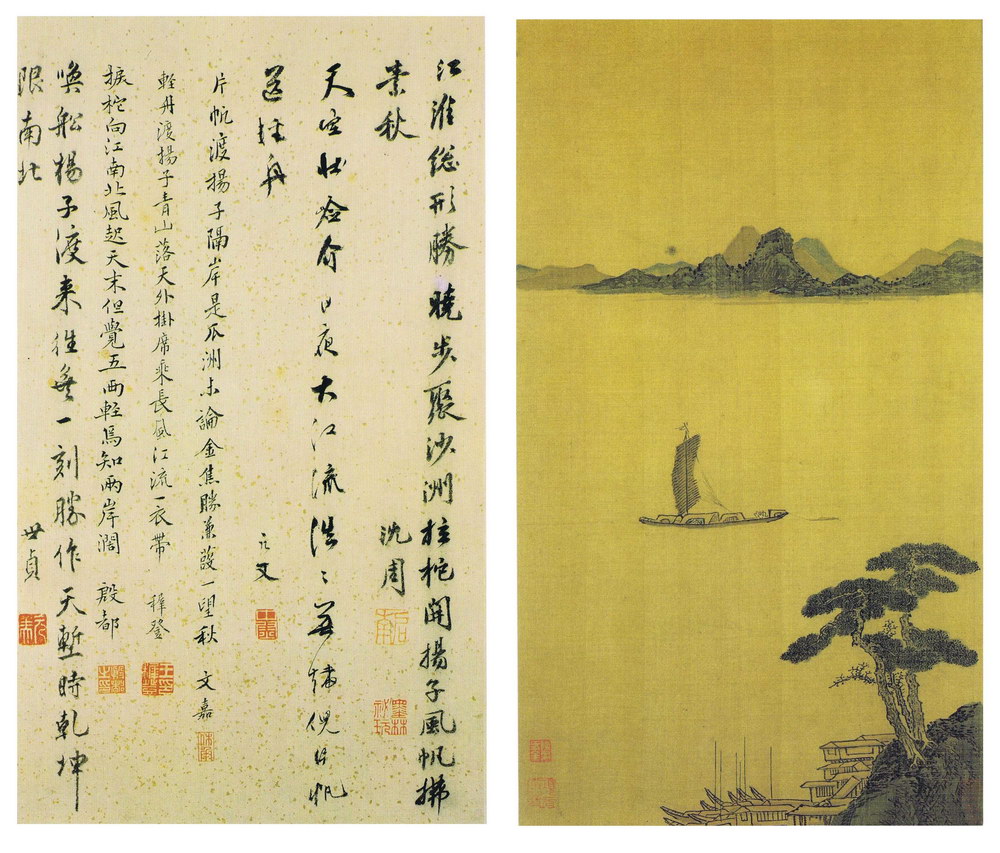 江淮総形勝曉步聚沙洲開揚子風帆拂
素秋 沈周
天日夜大江流浩〻無端倪片帆
舟
片帆渡揚子隔岸是瓜洲未論金焦勝蒹葭一望秋 文嘉
輕舟渡揚子青山落天外掛席乘長風江流一衣帶 穉登
捩柁向江南北風起天末但覺五兩輕焉知兩岸濶 殷都
喚船楊子渡來往無一刻勝作天塹時乾坤
限南北 世貞
墨林祕玩